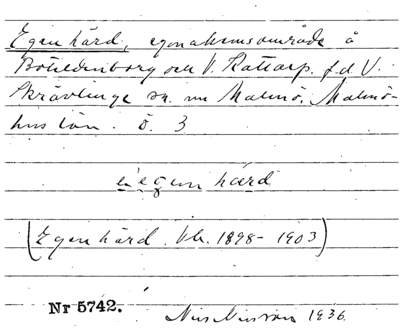 Egen härd, egnahemsområde å
Botildenborg och V. Kattarp f.d. V.
Skrävlinge sn. nu Malmö. Malmö-
hus län. ö. 3
egen härd
(Egen härd. Vb. 1898-1903)
Nr 5742.
Nils Nilsson 1936.